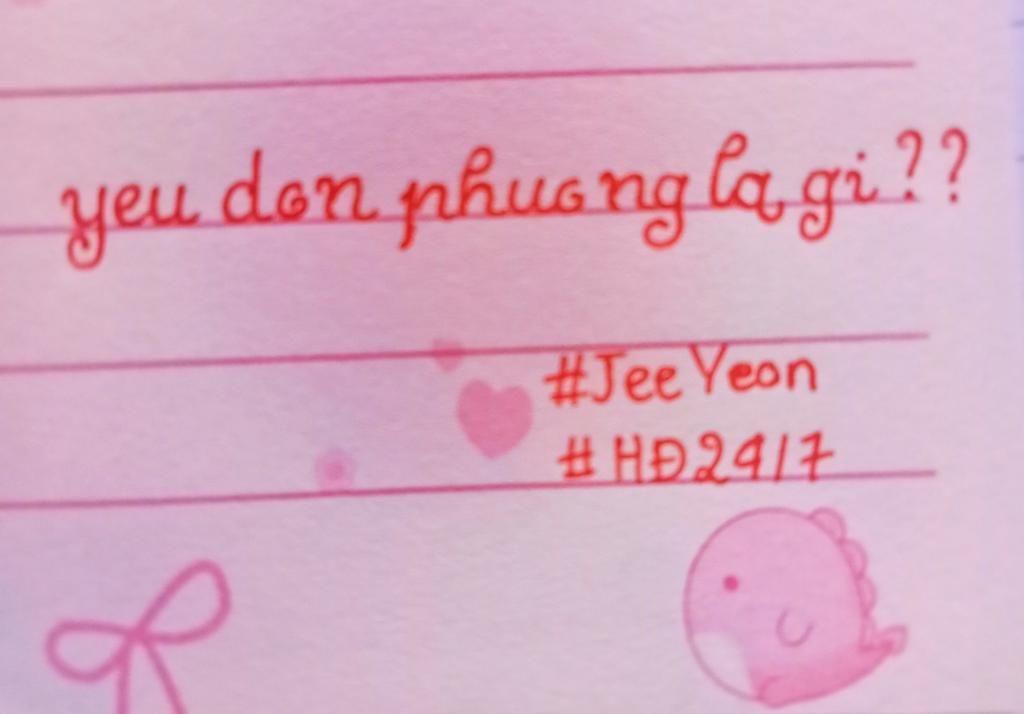 yeu don phuong la gi??
#JeeYeon
#HĐ24/7